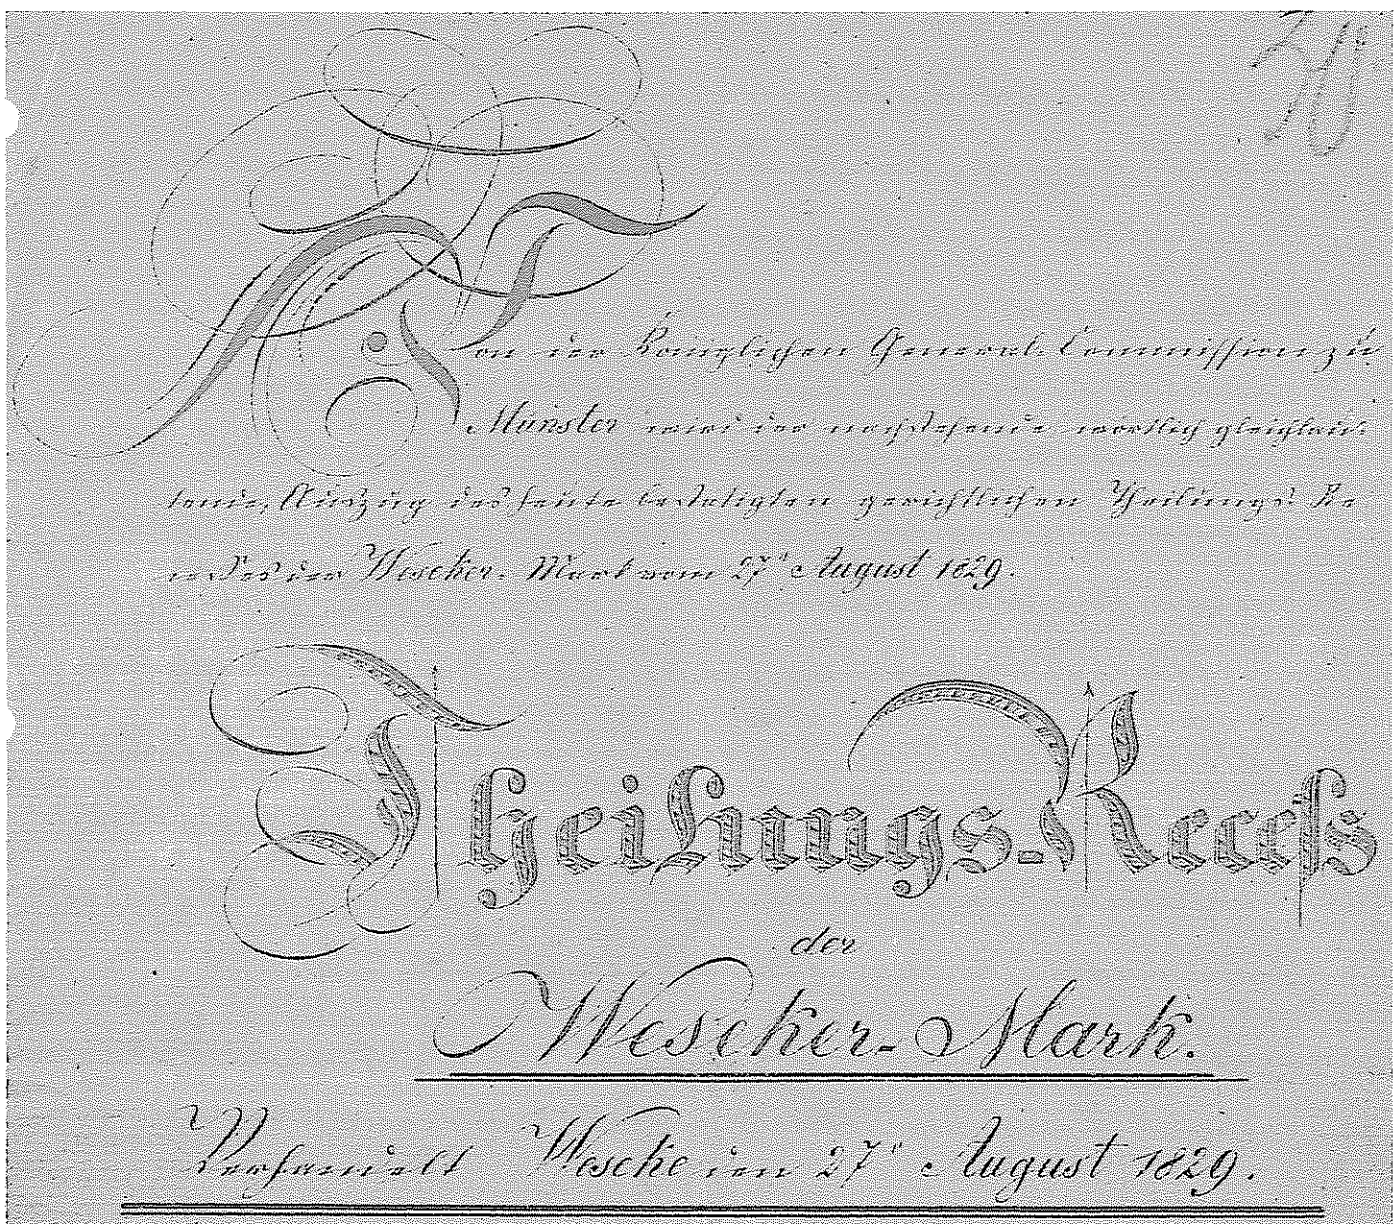 Von der Königlichen General-Commission zu
Münster wird der nachstehende wörtlich gleichlau-
tende, Auszug des heute bestätigten gerichtlichen Theilungs-Re
cesses der Weseker-Mark vom 27ᵗ August 1829.
Theilungs-Receſs
der
Weseker-Mark.
Verhandelt Weseke den 27ᵗ August 1829.